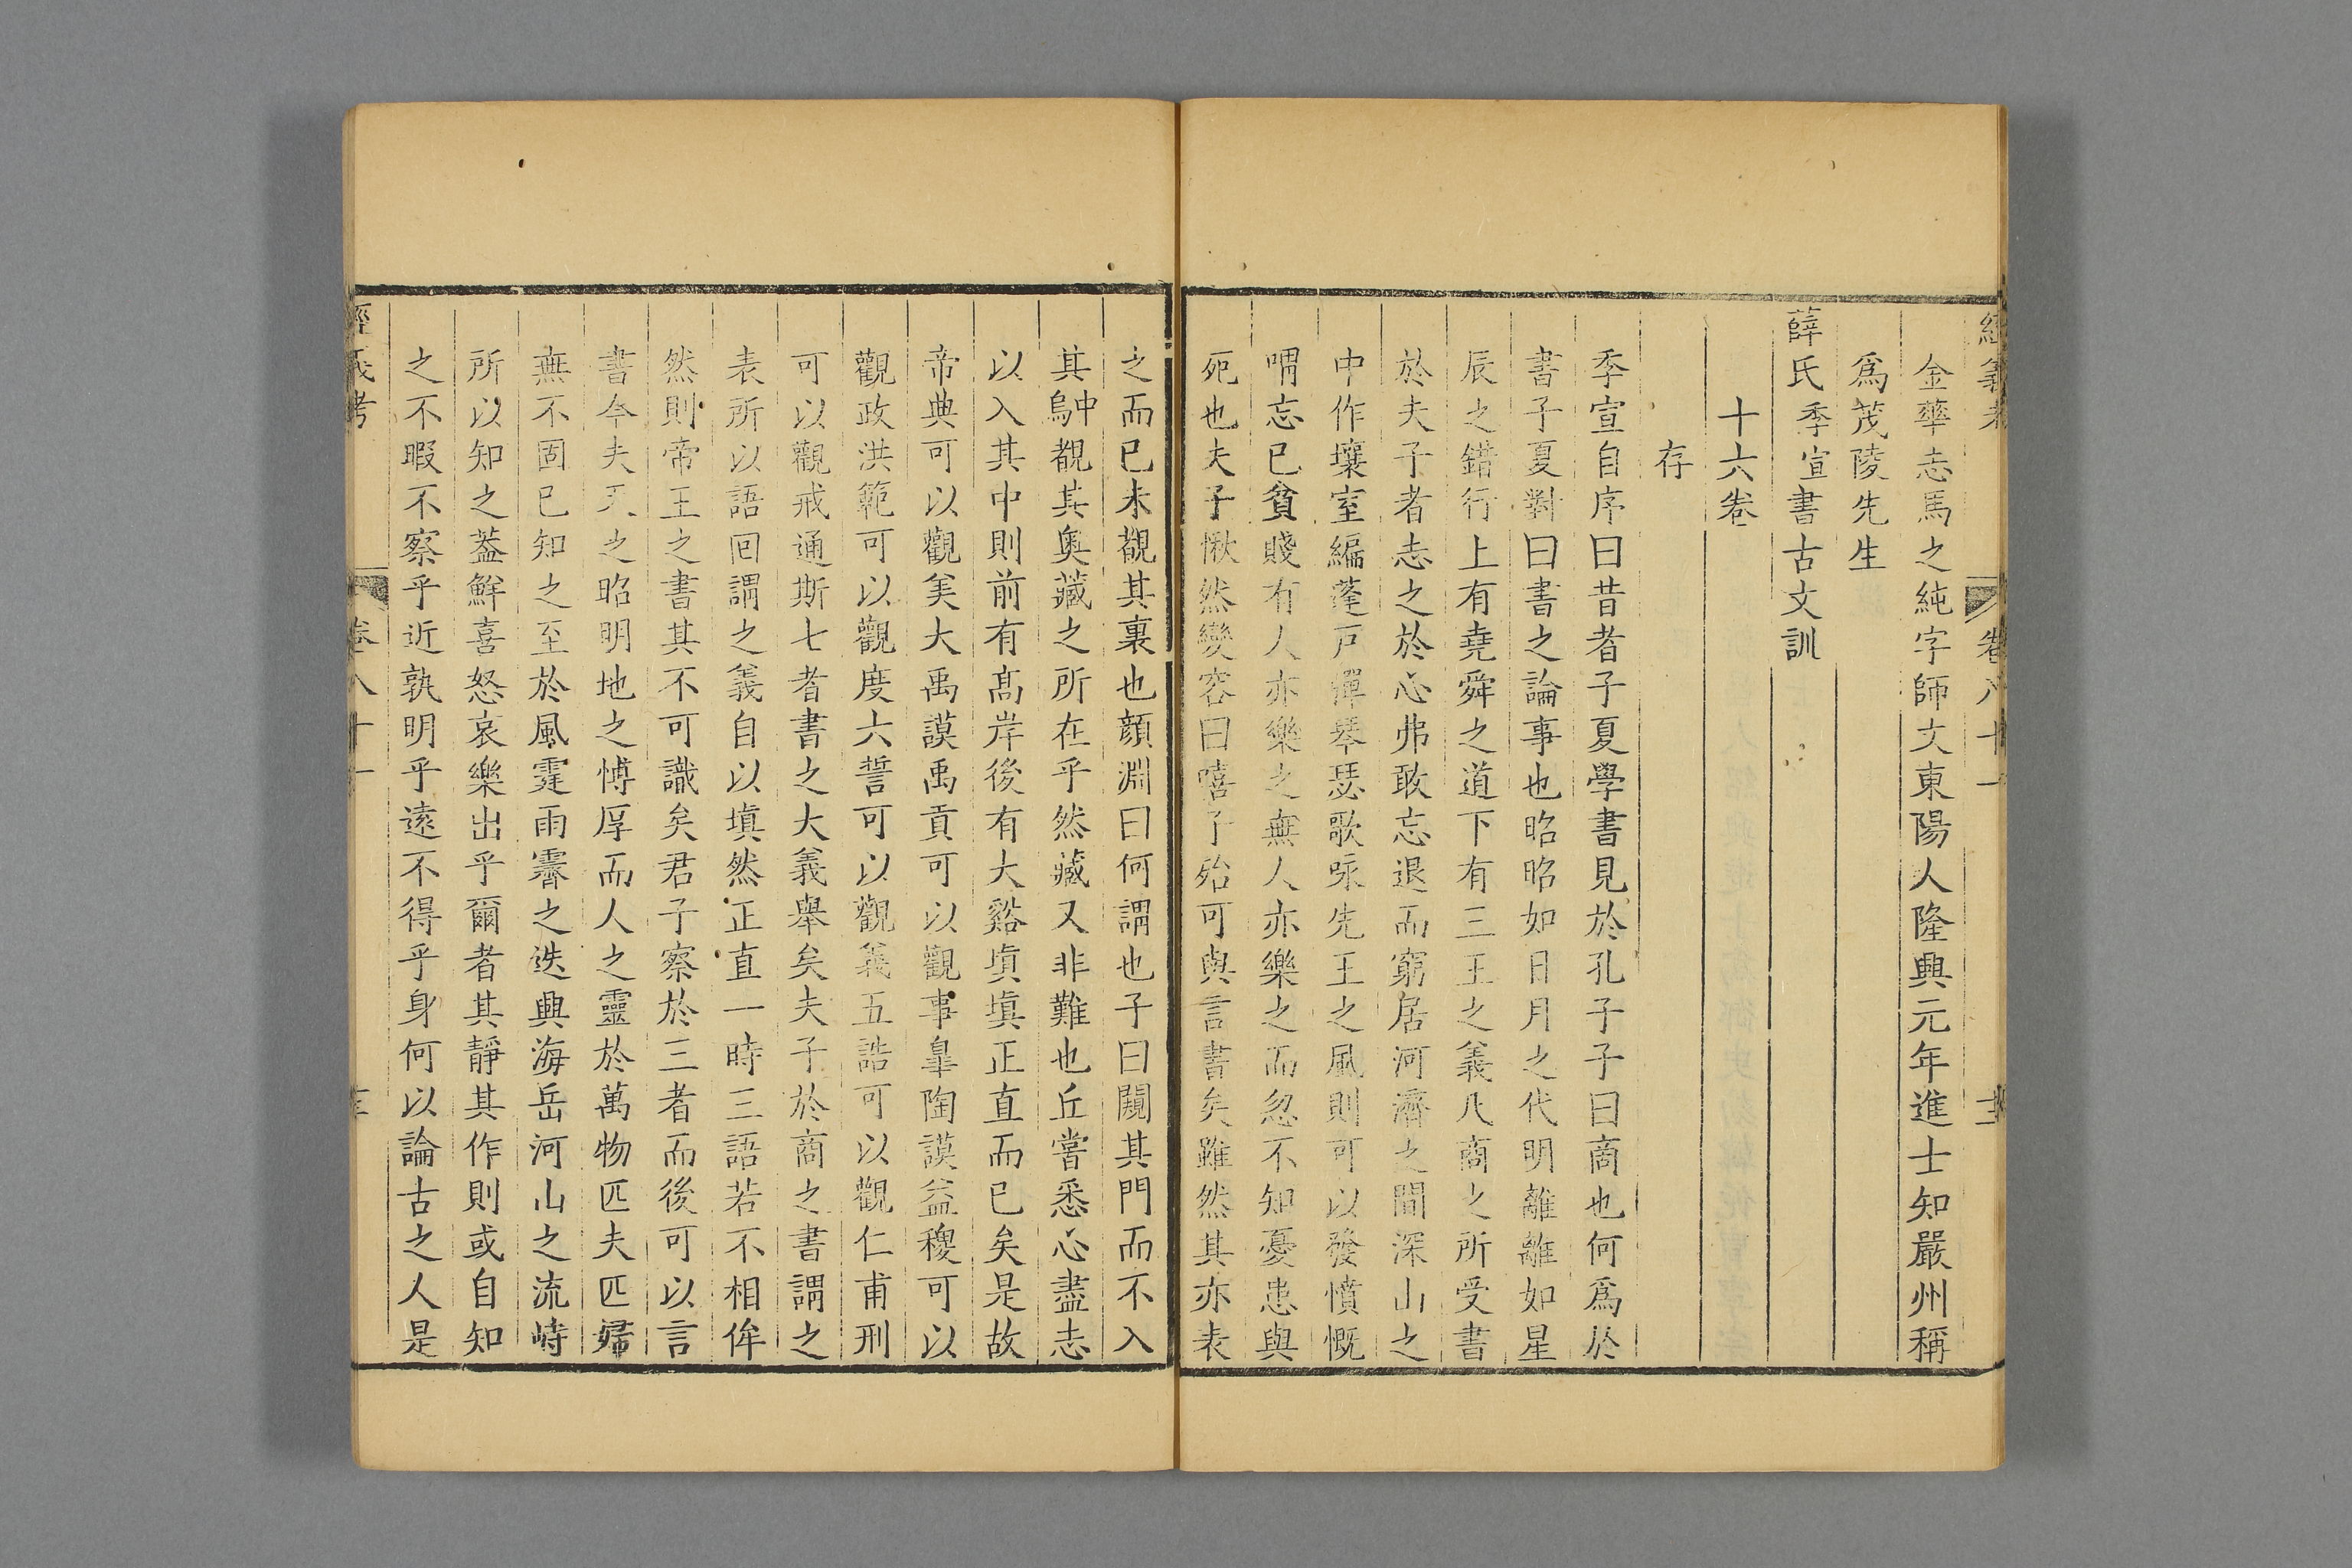 經義考
卷八十一
金華志馬之純字師文東陽人隆興元年進士知嚴州稱
爲茂陵先生
薛氏季宣書古文訓
十六卷
存
季宣自序曰昔者子夏學書見於孔子子曰商也何爲於
書子夏對曰書之論事也昭昭如日月之代明離離如星
辰之錯行上有堯舜之道下有三王之義凡商之所受書
於夫子者志之於心弗敢忘退而窮居河濟之間深山之
中作壤室編蓬戸彈琴瑟歌咏先王之風則可以發憤慨
喟忘已貧賤有人亦樂之無人亦樂之而忽不知憂患與
死也夫子愀然變容曰嘻子殆可與言書矣雖然其亦表
之而已未觀其裏也顔淵曰何謂也子曰闚其門而不入
其中烏覩其奥藏之所在乎然藏又非難也丘嘗悉心盡志
以入其中則前有髙岸後有大谿塡塡正直而已矣是故
帝典可以觀美大禹謨禹貢可以觀事臯陶謨益稷可以
觀政洪範可以觀度六誓可以觀義五誥可以觀仁甫刑
可以觀戒通斯七者書之大義舉矣夫子於商之書謂之
表所以語回謂之義自以塡然正直一時三語若不相侔
然則帝王之書其不可識矣君子察於三者而後可以言
書今夫天之昭明地之愽厚而人之靈於萬物匹夫匹婦
無不固已知之至於風霆雨霽之迭興海岳河山之流峙
所以知之葢鮮喜怒哀樂出乎爾者其靜其作則或自知
之不暇不察乎近孰明乎遠不得乎身何以論古之人是
經義考
卷八十一